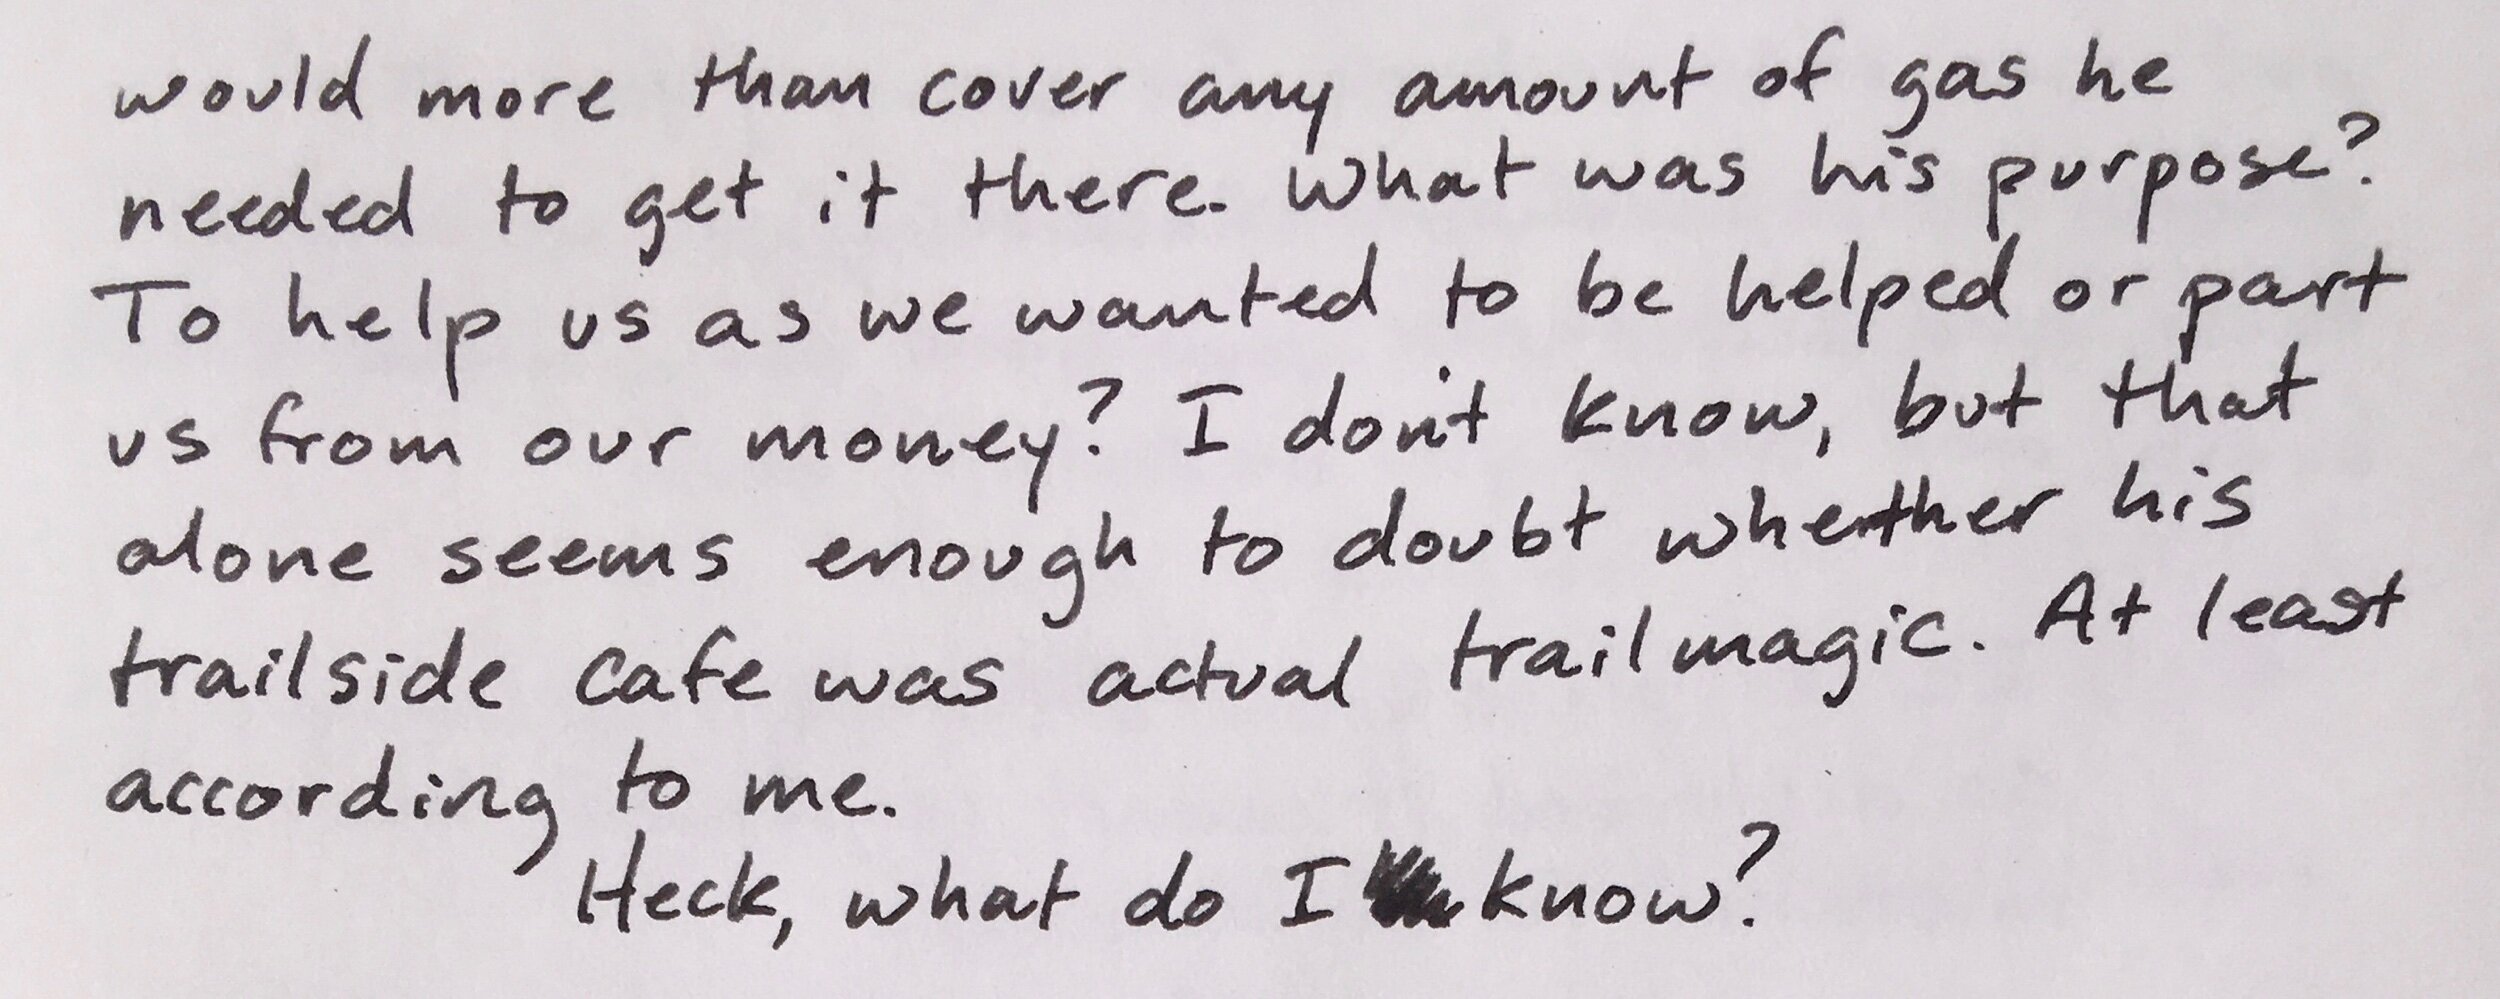 would more than cover any amount of gas he
needed to get it there. What was his purpose?
To help us as we wanted to be helped or part
us from our money? I don't know, but that
alone seems enough to doubt whether his
trailside cafe was actual trail magic. At least
according to me.
Heck, what do I know?